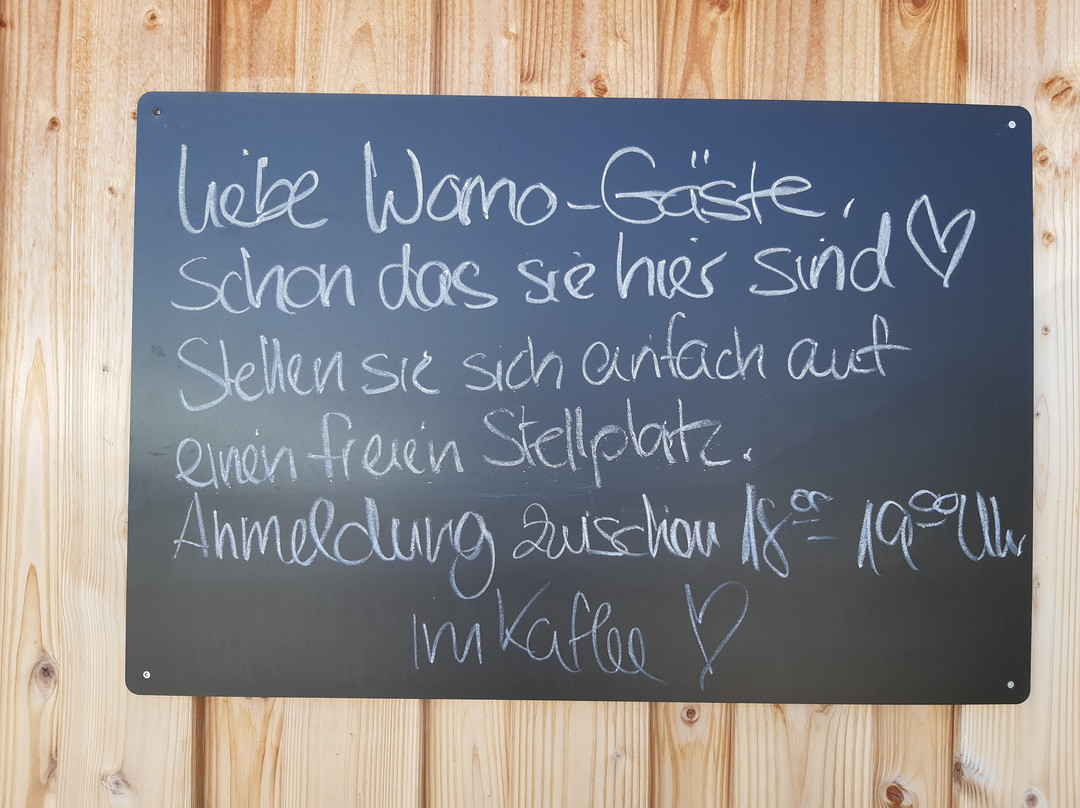 Liebe Womo-Gäste,
Schon das sie hier sind ♡
Stellen sie sich einfach auf
einen freien Stellplatz.
Anmeldung zwischen 18⁰⁰ - 19⁰⁰ Uhr
im Kaffee ♡